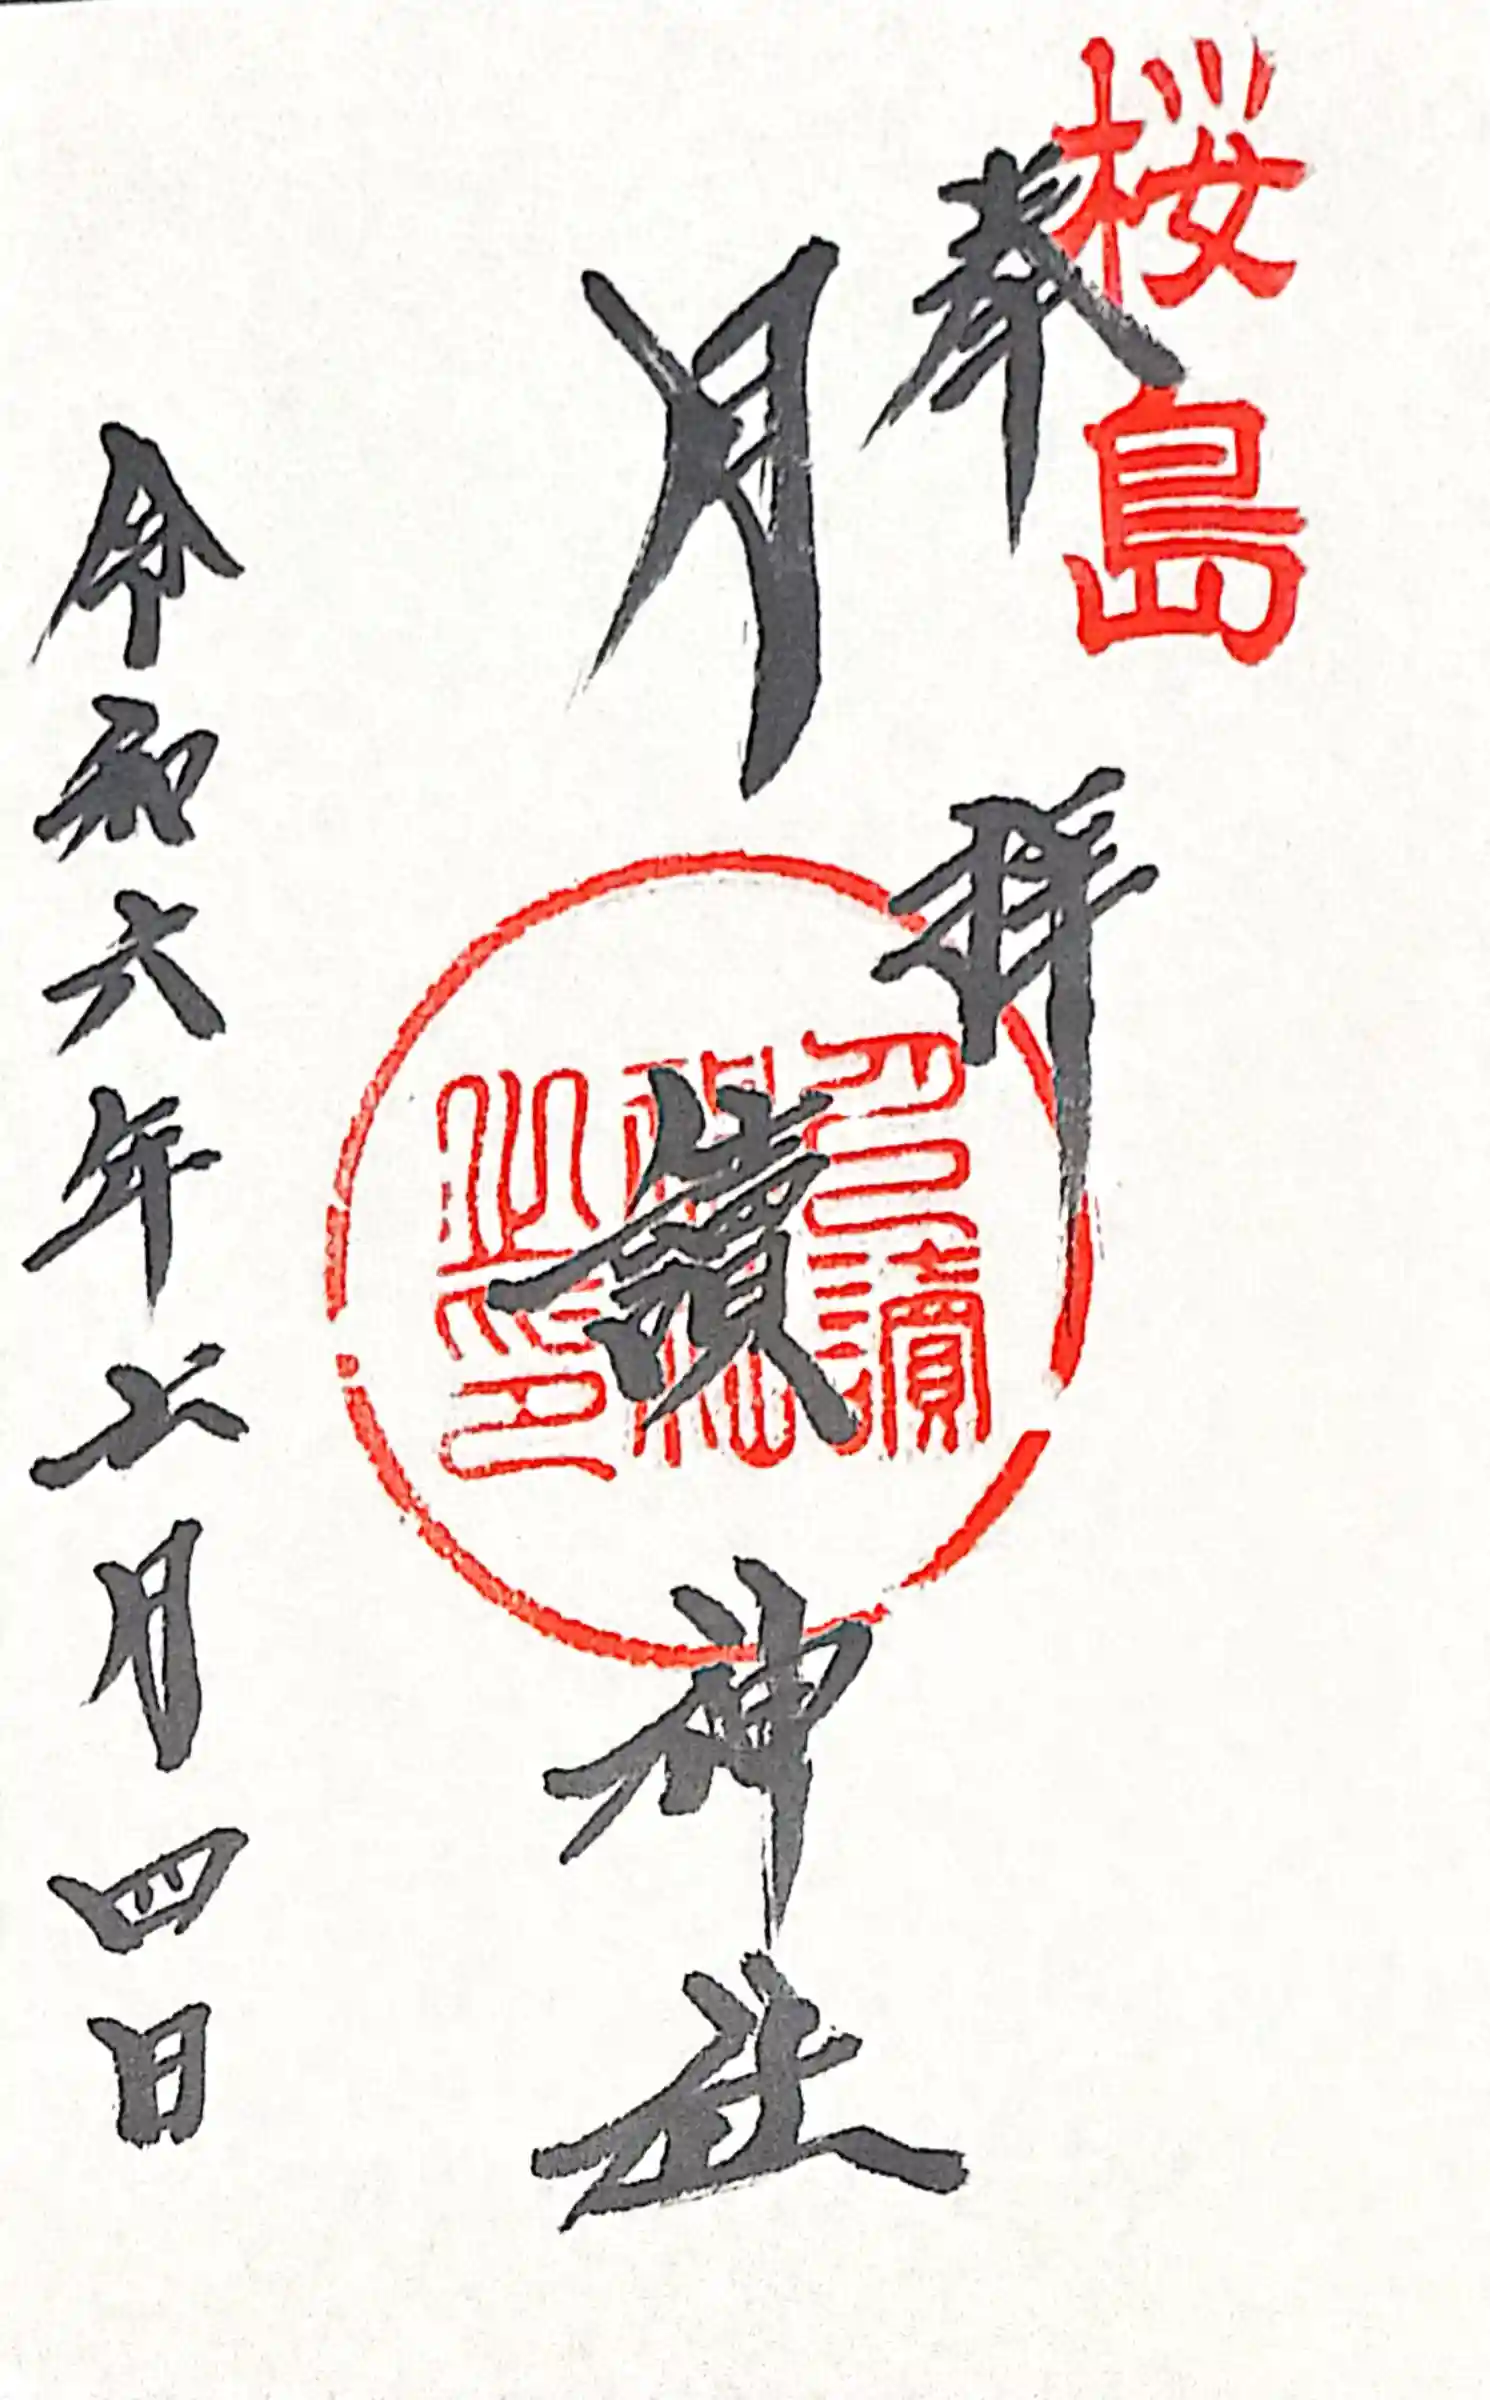 桜島
奉拝
月讀神社
月讀
神社
之印
令和六年月四日